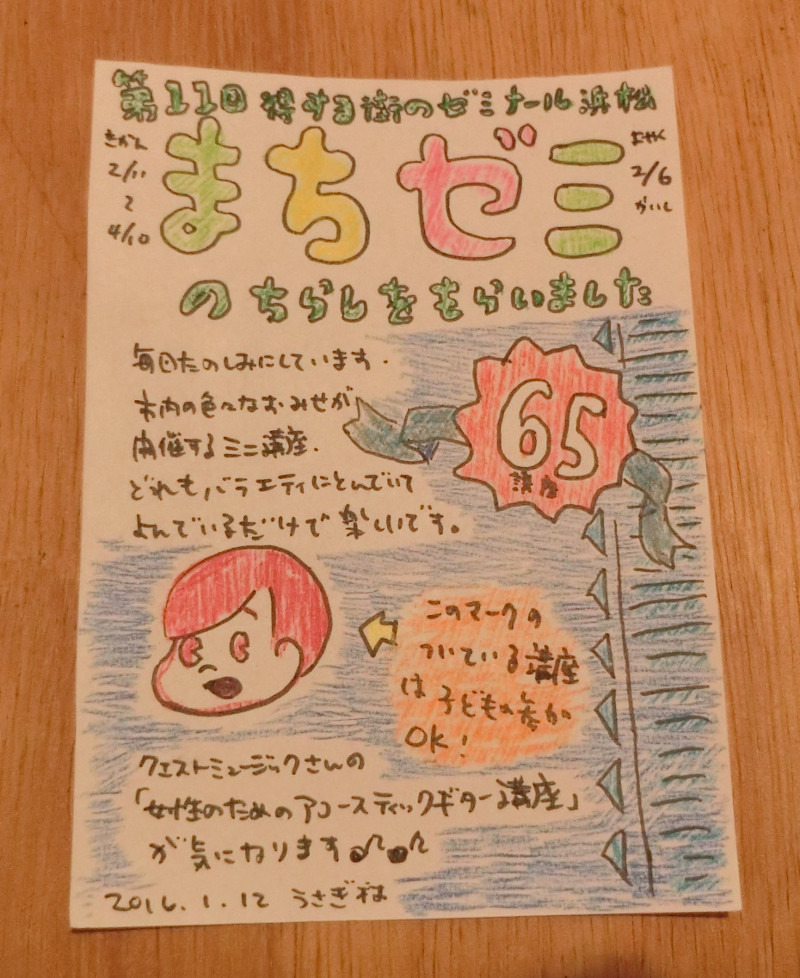 第11回 得する街のゼミナール浜松
きかん
2/11
〜
4/10
まちゼミ
よやく
2/6
かいし
のちらしをもらいました
毎回たのしみにしています.
市内の色々なおみせが
開催するミニ講座.
どれもバラエティにとんでいて
よんでいるだけで楽しいです。
65
講座
このマークの
ついている講座
は子どもの参加
OK!
クエストミュージックさんの
「女性のためのアコースティックギター講座」
が気になります
2016.1.12 うさぎ